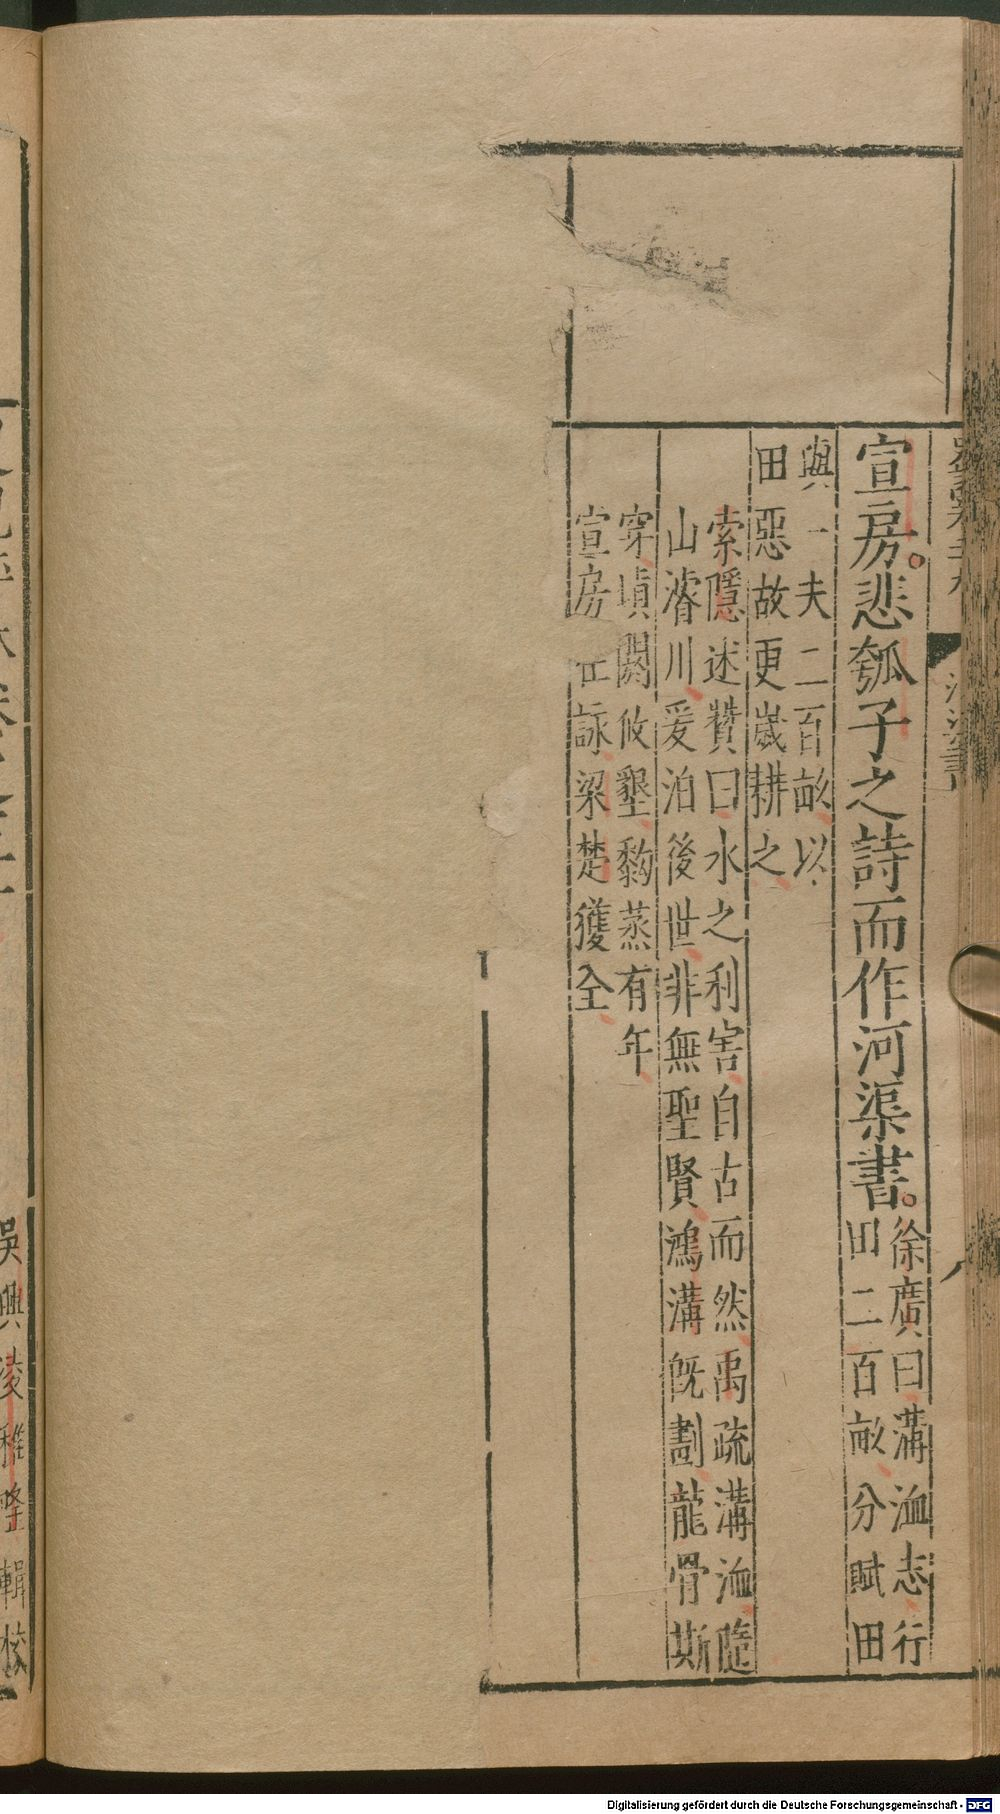 河渠書
宣房。悲瓠子之詩而作河渠書。
徐廣曰溝洫志行
田二百畝分賦田
與一夫二百畝以
田惡故更歲耕之
索隱述贊曰水之利害自古而然禹疏溝洫隨
山濬川爰洎後世非無聖賢鴻溝既劃龍骨斯
穿塡閼攸墾黎蒸有年
宣房在詠梁楚獲全
吳興凌稚隆輯校
Digitalisierung gefördert durch die Deutsche Forschungsgemeinschaft - DFG